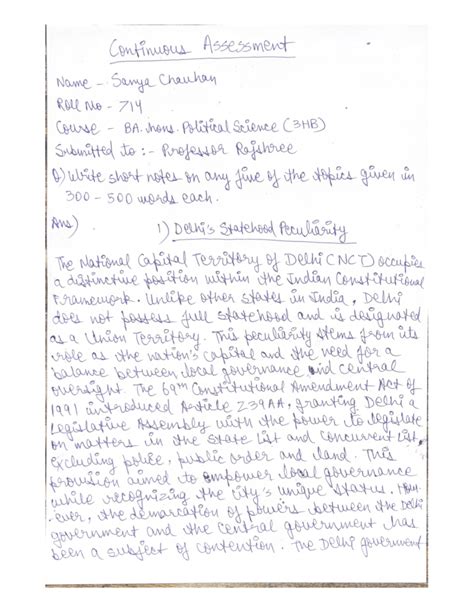 Continuous Assessment
Name - Sanya Chauhan
Roll No - 714
Course - BA. hons. Political Science (3HB)
Submitted to :- Professor Rajshree
Q) Write short notes on any five of the topics given in
300 - 500 words each.
Ans) 1) Delhi's Statehood Peculiarity
The National Capital Territory of Delhi (NCT) occupies
a distinctive position within the Indian Constitutional
Framework. Unlike other states in India, Delhi
does not possess full statehood and is designated
as a Union Territory. This peculiarity stems from its
role as the nation's capital and the need for a
balance between local governance and central
oversight. The 69th Constitutional Amendment Act of
1991 introduced Article 239AA, granting Delhi a
Legislative Assembly with the power to legislate
on matters in the State List and Concurrent List,
excluding police, public order and land. This
provision aimed to empower local governance
while recognizing the city's unique status. How-
ever, the demarcation of powers between the Delhi
government and the Central government has
been a subject of contention. The Delhi government